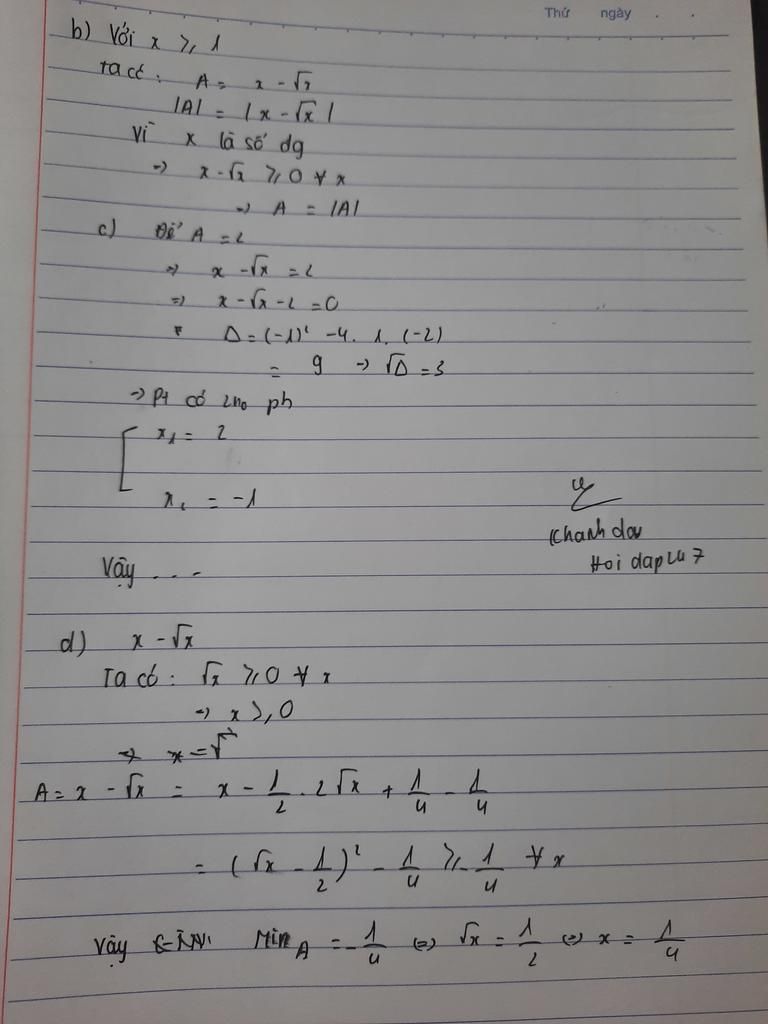 Thứ ngày . .
b) Với x ≥ 1
Ta có : A = x - √x
|A| = | x - √x |
Vì x là số dg
=> x - √x ≥ 0 ∀ x
=> A = |A|
c) Để A = 2
=> x - √x = 2
=> x - √x - 2 = 0
Δ = (-1)² - 4. 1. (-2)
= 9 -> √Δ = 3
=> Pt có 2no pb
x₁ = 2
x₂ = -1
Khanh dou
Hoi dap 247
Vậy ...
d) x - √x
Ta có : √x ≥ 0 ∀ x
=> x ≥ 0
=> x = √
A = x - √x = x - 1/2 . 2√x + 1/4 - 1/4
= (√x - 1/2)² - 1/4 ≥ - 1/4 ∀ x
Vậy Min A = - 1/4 <=> √x = 1/2 <=> x = 1/4